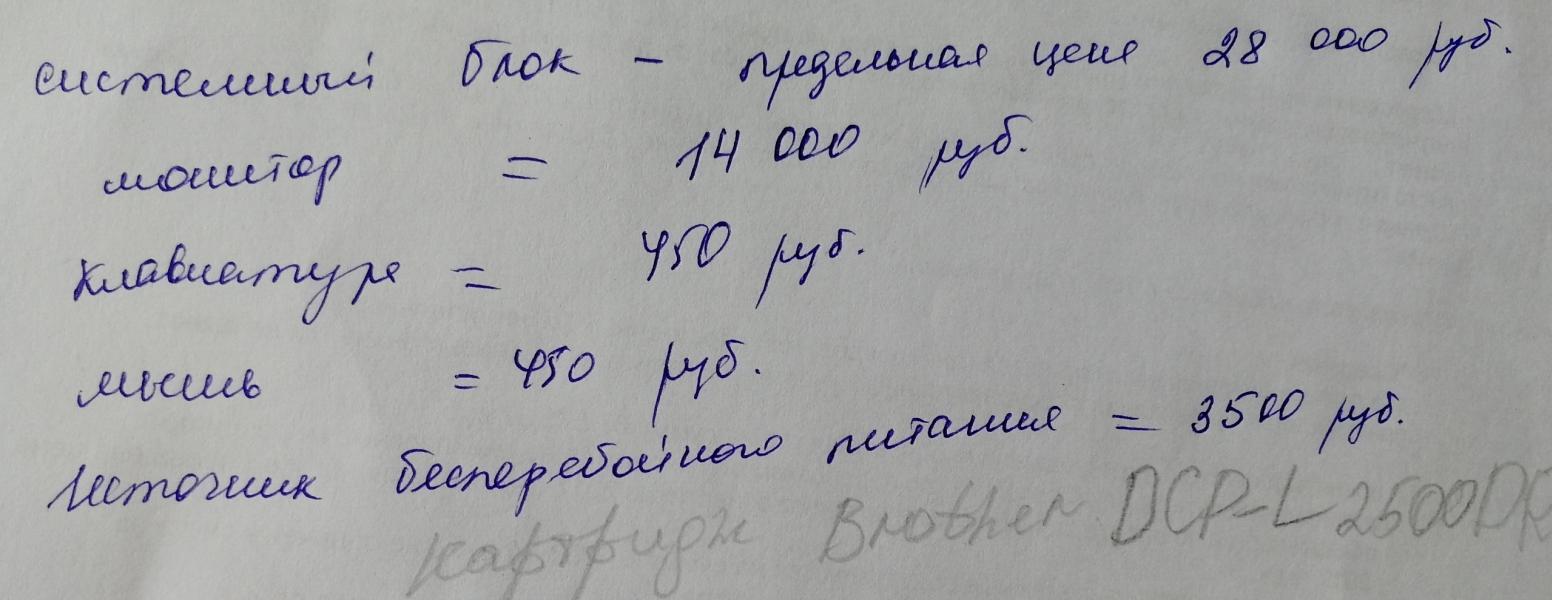 системный блок - предельная цена 28 000 руб.
монитор = 14 000 руб.
клавиатура = 450 руб.
мышь = 450 руб.
Источник бесперебойного питания = 3500 руб.
картридж Brother DCP-L2500DR